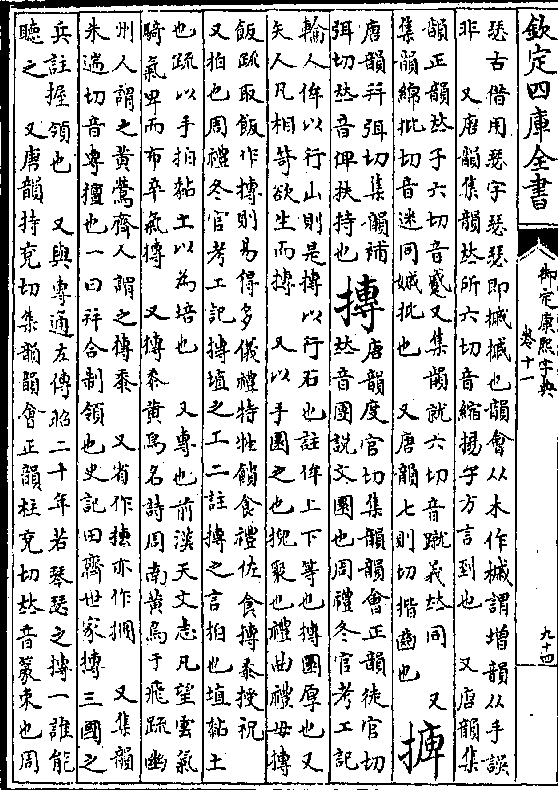 欽定四庫全書
御定康熙字典
卷十一
九十四
瑟古借用瑟字瑟瑟即摵摵也韻會从木作槭謂增韻从手誤
非　又唐韻集韻𠀤所六切音縮揚子方言到也　又唐韻集
韻正韻𠀤子六切音蹙又集韻就六切音蹴義𠀤同　又
集韻綿批切音迷同㩢批也　又唐韻七則切揩齒也　捭
唐韻幷弭切集韻補
弭切𠀤音俾扶持也　摶
唐韻度官切集韻韻會正韻徒官切
𠀤音團說文圜也周禮冬官考工記
輪人侔以行山則是摶以行石也註侔上下等也摶圜厚也又
矢人凡相笴欲生而摶　又以手圜之也揑聚也禮曲禮毋摶
飯疏取飯作摶則易得多儀禮特牲饋食禮佐食摶黍授祝
又拍也周禮冬官考工記摶埴之工二註摶之言拍也埴黏土
也疏以手拍黏土以為培也　又專也前漢天文志凡望雲氣
騎氣卑而布卒氣摶　又摶黍黃鳥名詩周南黃鳥于飛疏幽
州人謂之黃鶯齊人謂之摶黍　又省作㨂亦作㨰　又集韻
朱遄切音專擅也一曰幷合制領也史記田齊世家摶三國之
兵註握領也　又與專通左傳昭二十年若琴瑟之摶一誰能
聽之　又唐韻持兗切集韻韻會正韻柱兗切𠀤音篆束也周